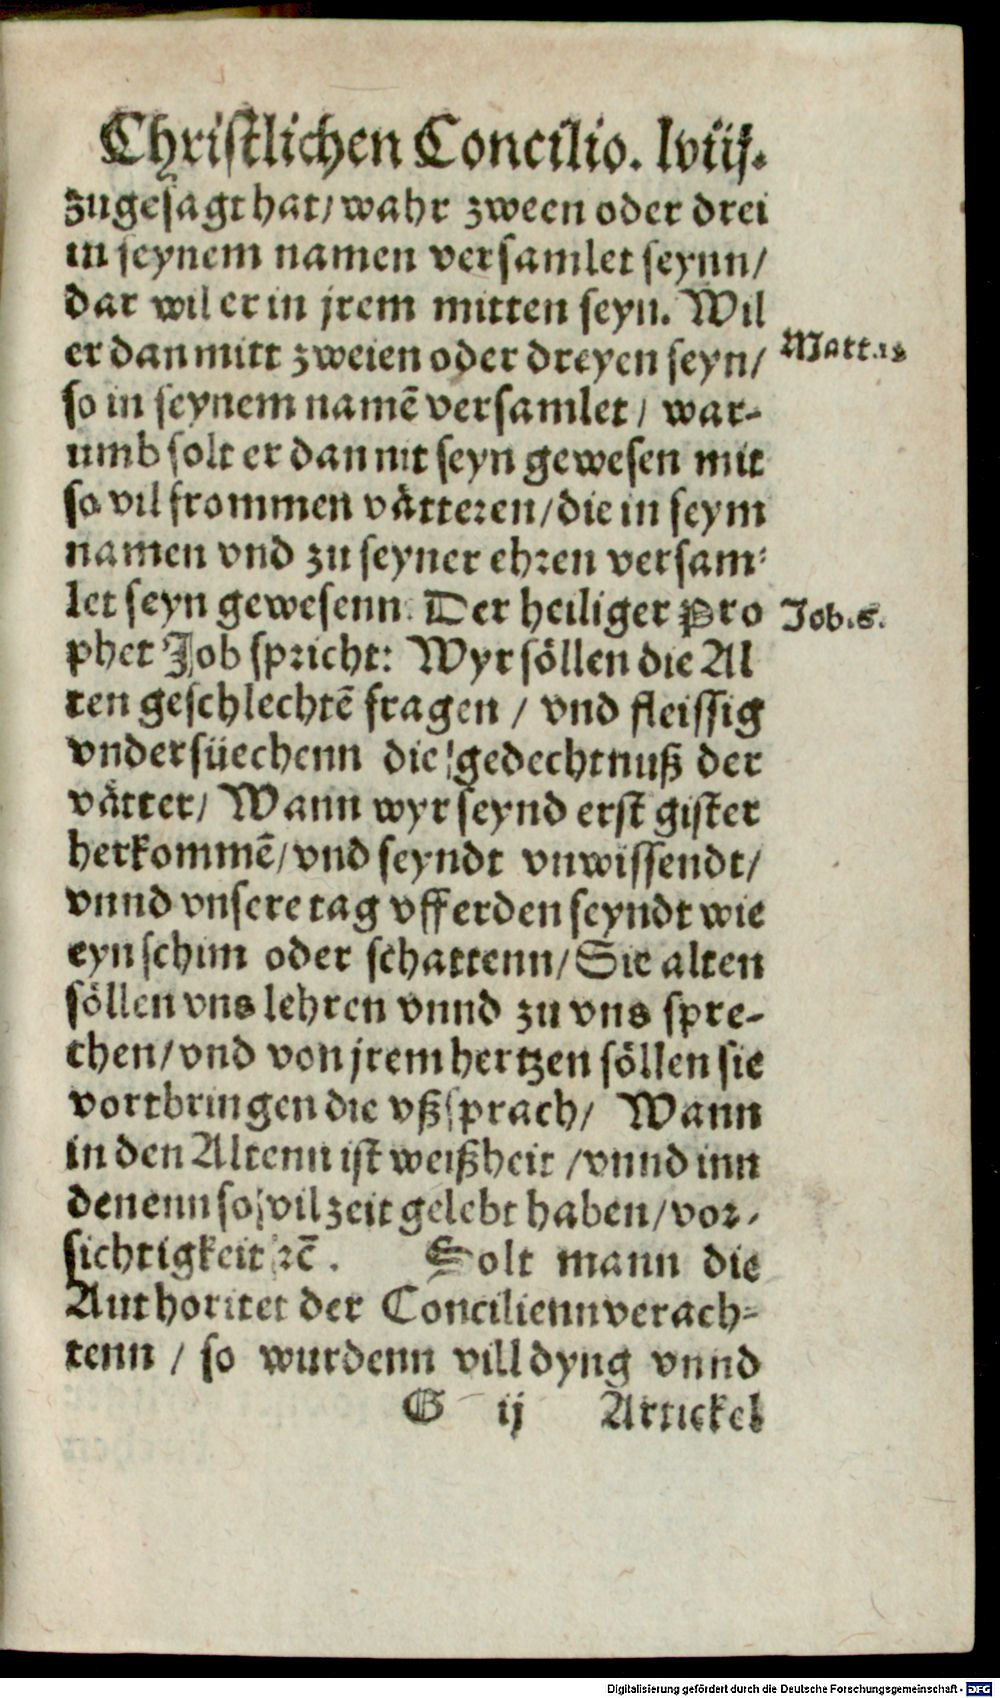 Christlichen Concilio. lviij.
zugesagt hat/ wahr zween oder drei
in seynem namen versamlet seynn/
dar wil er in jrem mitten seyn. Wil
er dan mitt zweien oder dreyen seyn/
Matt.18
so in seynem namẽ versamlet / war-
umb solt er dan nit seyn gewesen mit
so vil frommen våtteren/die in seym
namen vnd zu seyner ehren versam-
let seyn gewesenn. Der heiliger Pro
Job.8.
phet Job spricht: Wyr söllen die Al
ten geschlechtẽ fragen / vnd fleissig
vndersüechenn die gedechtnuß der
våtter/ Wann wyr seynd erst gister
herkommẽ/vnd seyndt vnwissendt/
vnnd vnsere tag vff erden seyndt wie
eyn schim oder schattenn/ Sie alten
söllen vns lehren vnnd zu vns spre-
chen/vnd von jrem hertzen söllen sie
vortbringen die vßsprach/ Wann
in den Altenn ist weißheit /vnnd inn
denenn so vil zeit gelebt haben/vor-
sichtigkeit ꝛc̃. Solt mann die
Authoritet der Conciliennverach-
tenn / so wurdenn vill dyng vnnd
G ij Artickel
Digitalisierung gefördert durch die Deutsche Forschungsgemeinschaft - DFG